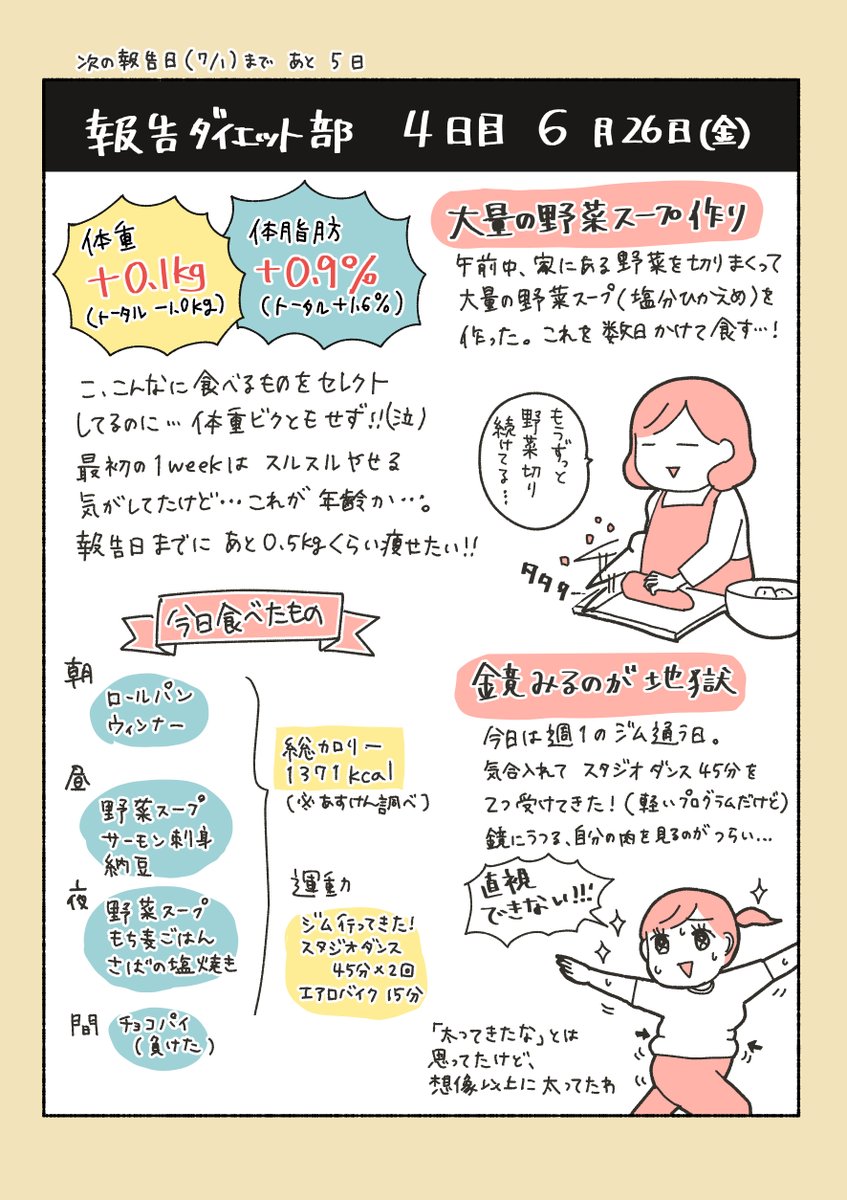 次の報告日(7/1)まで あと 5日
報告ダイエット部 4日目 6月26日(金)
体重
+0.1kg
(トータル -1.0kg)
体脂肪
+0.9%
(トータル +1.6%)
こ、こんなに食べるものをセレクト
してるのに…体重ビクともせず!!(泣)
最初の1weekは スルスルやせる
気がしてたけど…これが年齢か…。
報告日までに あと0.5kgくらい痩せたい!!
今日食べたもの
朝
ロールパン
ウィンナー
昼
野菜スープ
サーモン刺身
納豆
夜
野菜スープ
もち麦ごはん
さばの塩焼き
間
チョコパイ
(負けた)
総カロリー
1371kcal
(※あすけん調べ)
運動
ジム行ってきた!
スタジオダンス
45分×2回
エアロバイク 15分
大量の野菜スープ作り
午前中、家にある野菜を切りまくって
大量の野菜スープ(塩分ひかえめ)を
作った。これを数日かけて食す…!
もうずっと
野菜切り
続けてる…
タタタ…
鏡みるのが地獄
今日は週1のジム通う日。
気合入れて スタジオダンス45分を
2つ受けてきた!(軽いプログラムだけど)
鏡にうつる、自分の肉を見るのがつらい…
直視
できない!!!
「太ってきたな」とは
思ってたけど、
想像以上に太ってたわ